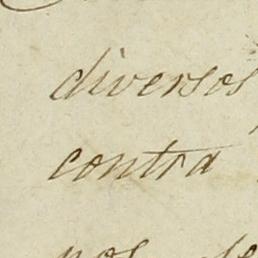 diversos
contra
nos de